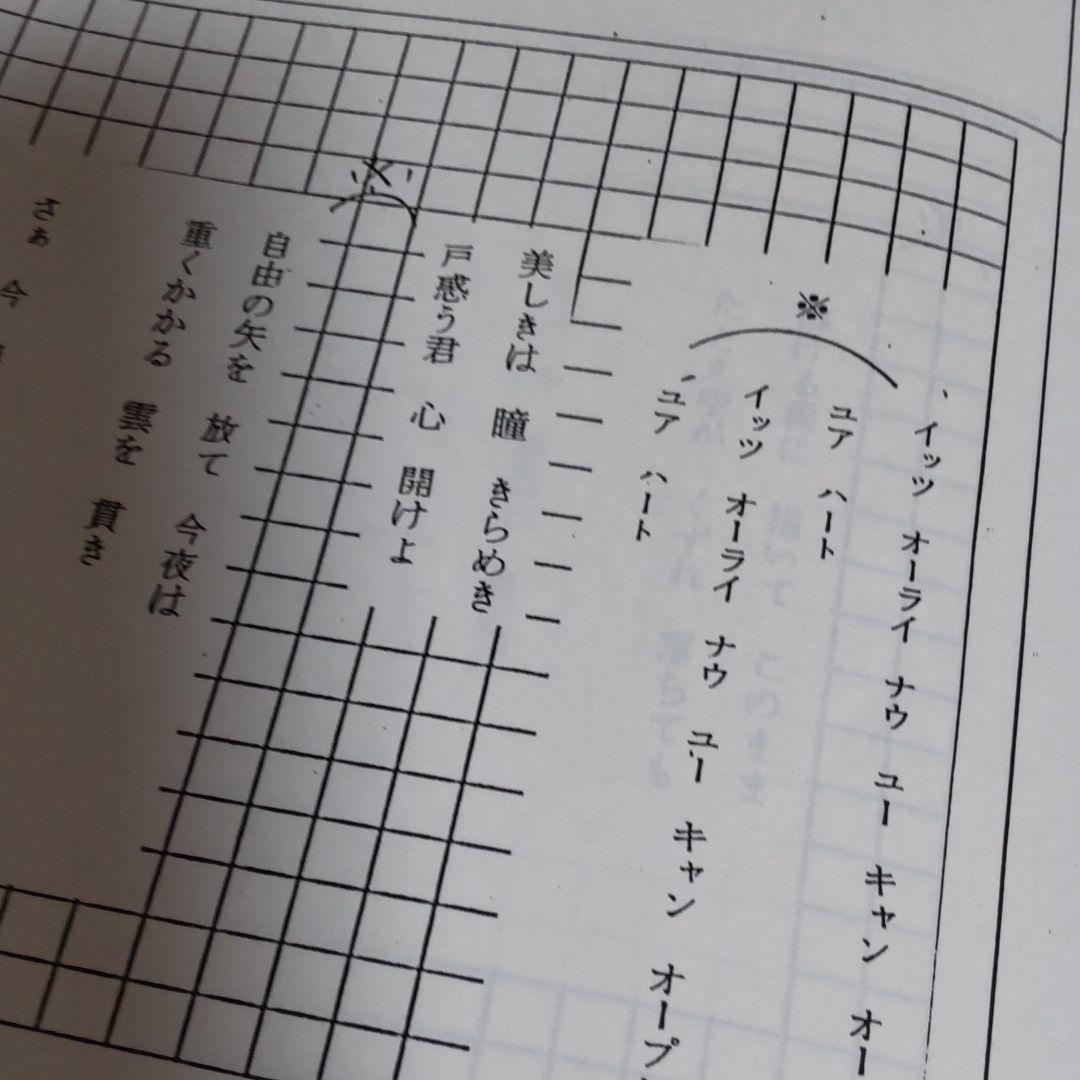 ※
イッツ オーライ ナウ ユー キャン オー
ユア ハート
イッツ オーライ ナウ ユー キャン オープ
ユア ハート
美しきは 瞳 きらめき
戸惑う君 心 開けよ
※
自由の矢を 放て 今夜は
重くかかる 雲を 貫き
さぁ 今